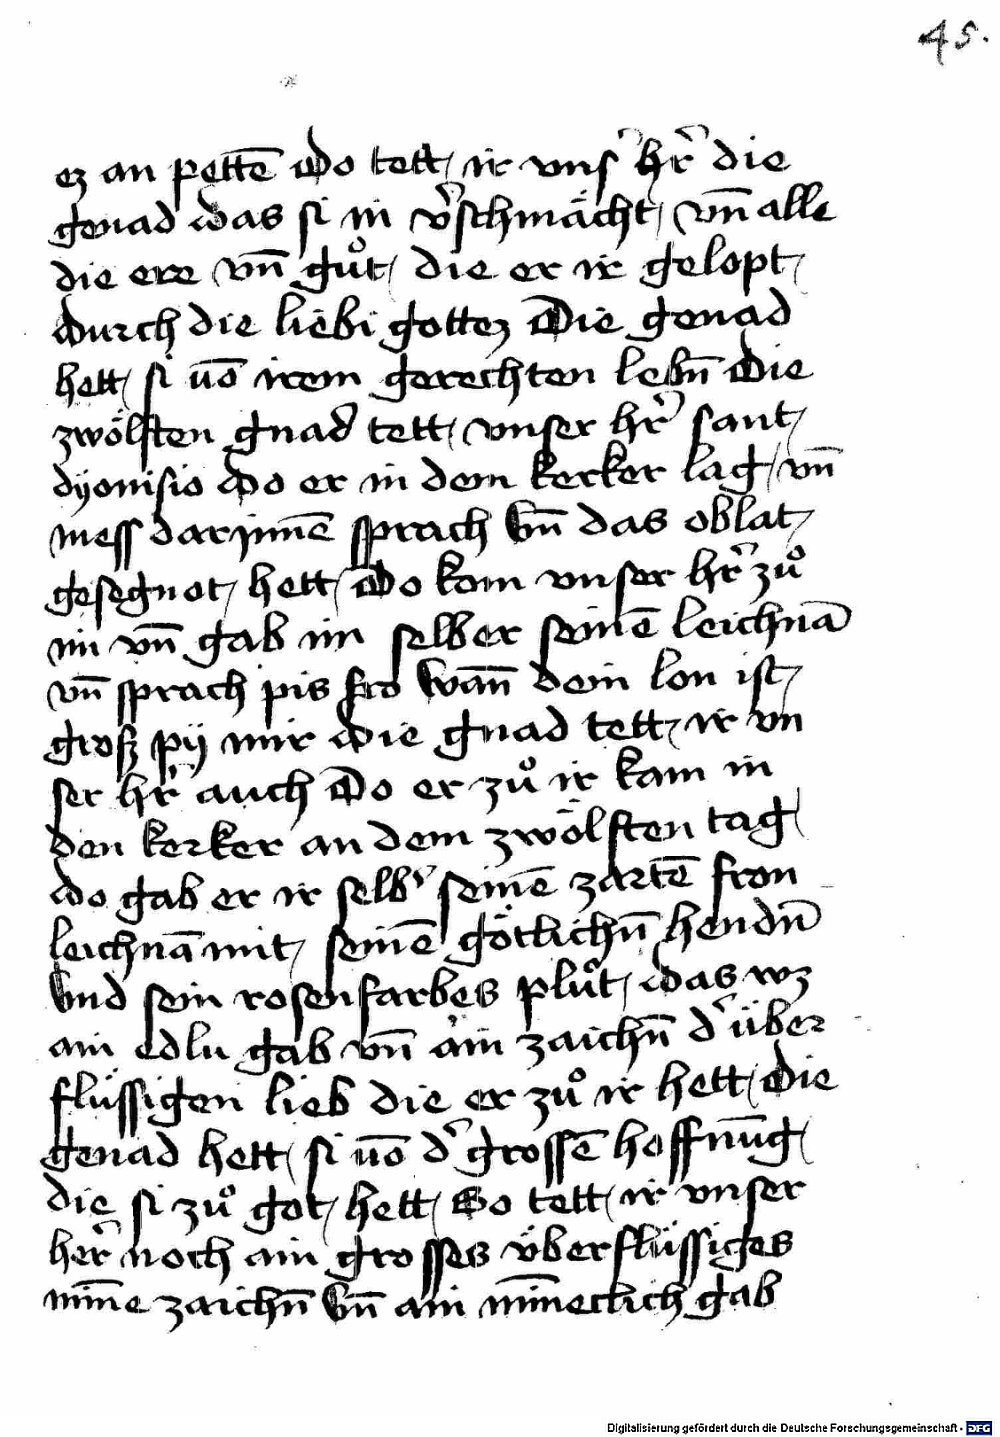 45.
ez an pettē Do tett ir vnsʼ hr̄ die
genad das si in vʼschmächt vn̄ alle
die ere vn̄ guͦt die er ir gelopt
durch die liebi gottez Die genad
hett si uō irem gerechten lebn̄ Die
zwölften gnad tett vnser hr̄ sant
dyonisio Do er in dem kerker lag vn̄
mess darjnnē sprach vn̄ das oblat
gesegnot hett Do kom vnser hr̄ zuͦ
im vn̄ gab im selber seinē leichnā
vn̄ sprach pis fro wān dein lon ist
grosz pÿ mir Die gnad tett ir vn
ser hr̄ auch Do er zuͦ ir kam in
den kerker an dem zwölften tag
do gab er ir selbʼ seinē zartē fron
leichnā mit seinē götlichn̄ hendn̄
vnd sein rosenfarbes pluͦt das wz
ain edlu gab vn̄ ain zaichn̄ dʼ über
flüssigen lieb die er zuͦ ir hett Die
genad hett si uō dʼ grossē hoffnūg
die si zuͦ got hett So tett ir vnser
her̄ noch ain grosses überflüssiges
mīne zaichn̄ vn̄ ain mīneclich gab
Digitalisierung gefördert durch die Deutsche Forschungsgemeinschaft - DFG